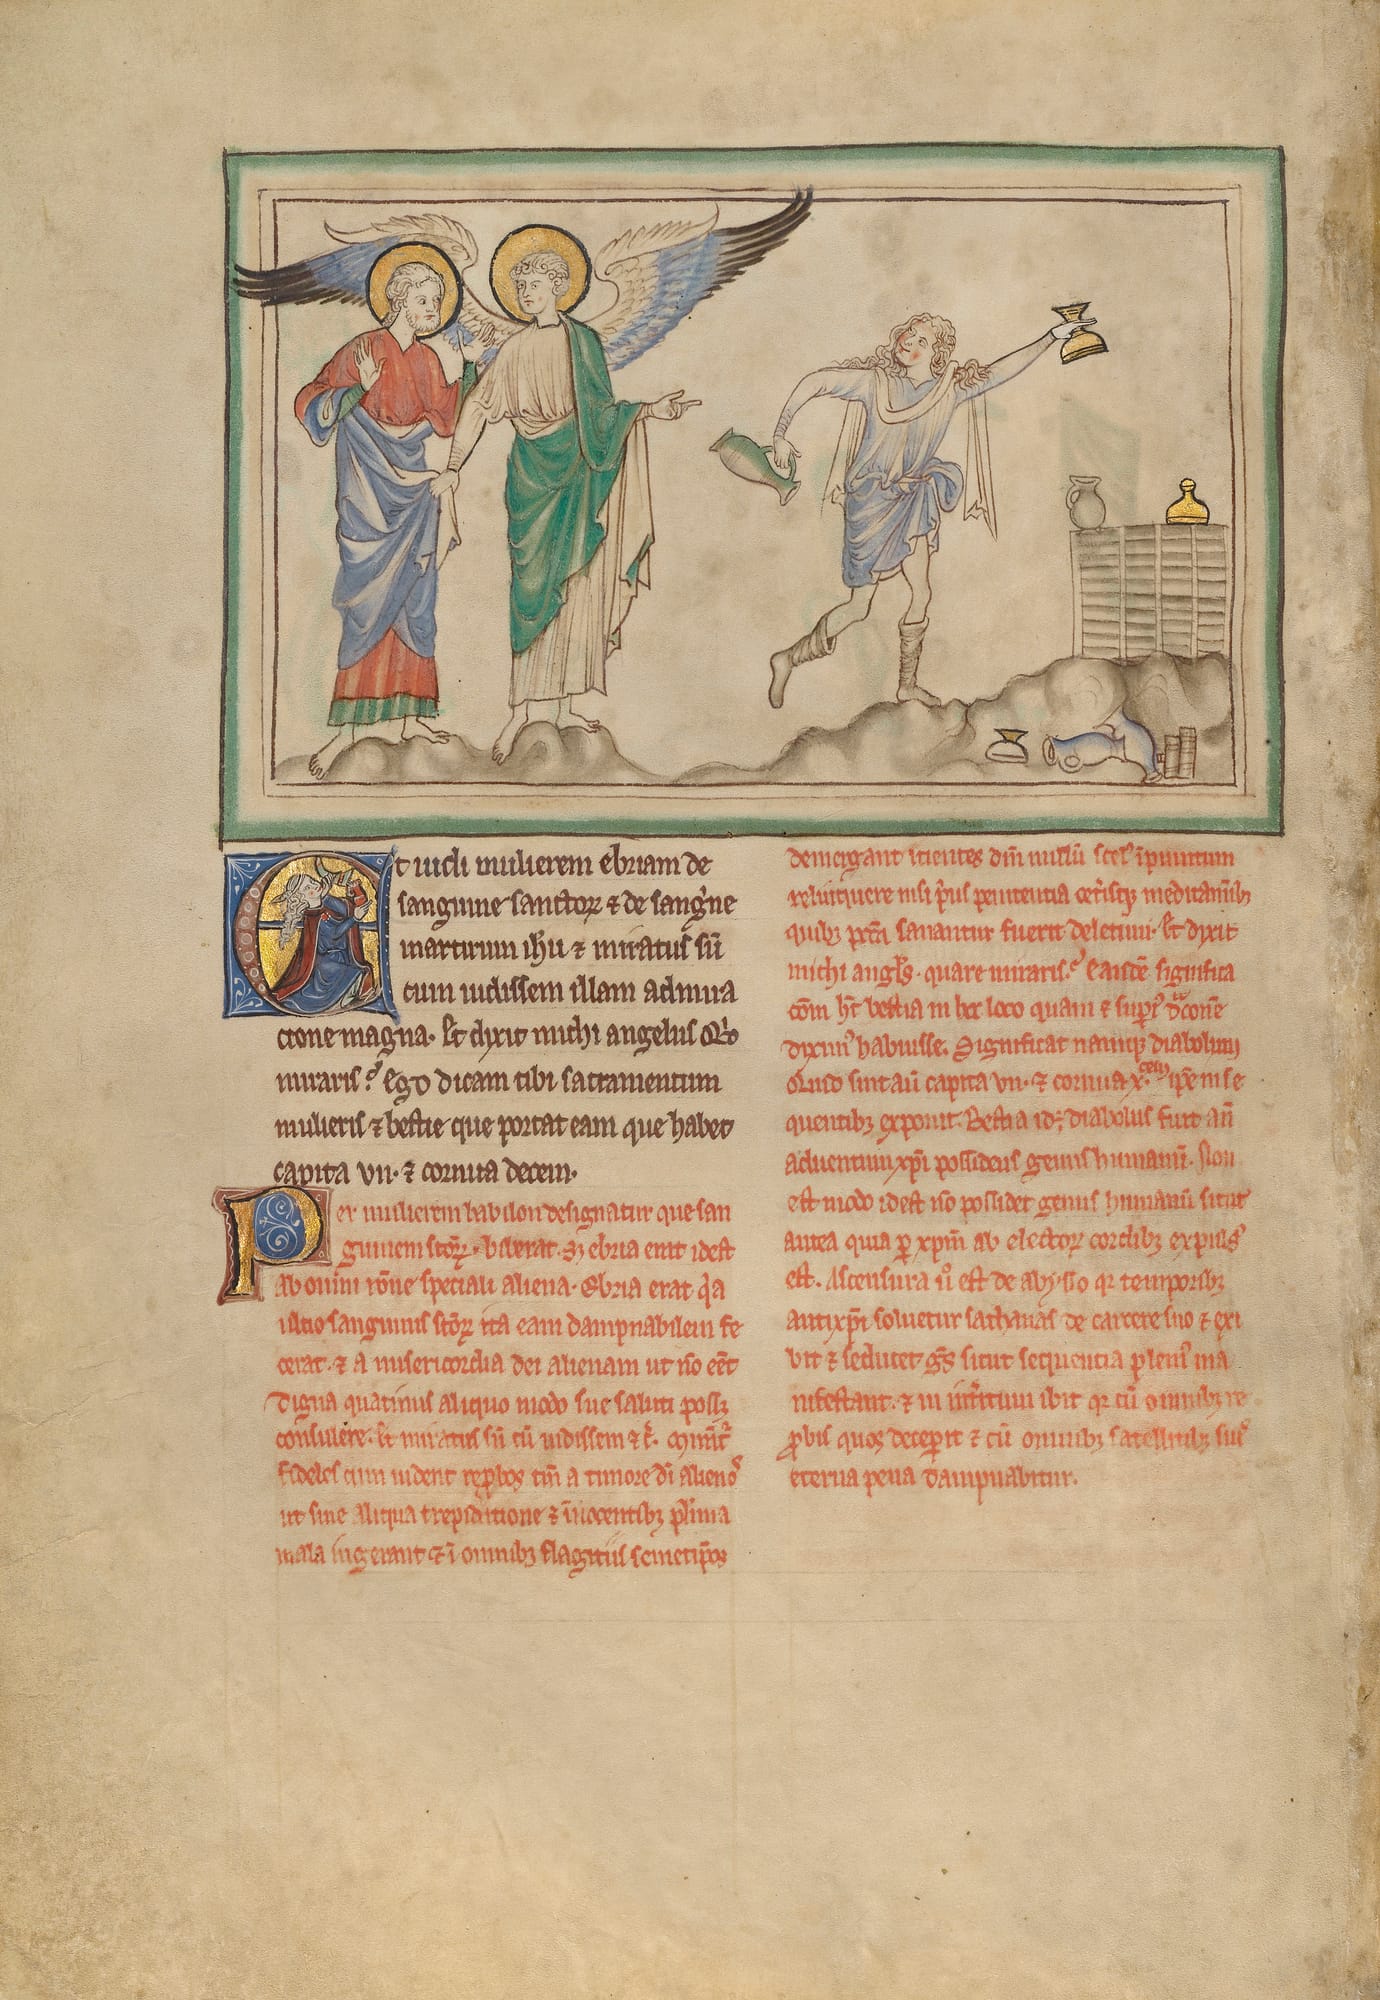 Et uidi mulierem ebriam de
sanguine sanctoꝝ ⁊ de sang̾ne
martirum ihu ⁊ miratus sū
cum uidissem illam admira
cione magna. Et dixit michi angelus Q̄re
miraris? Ego dicam tibi sacramentum
mulieris ⁊ bestie que portat eam que habet
capita vii. ⁊ cornua decem.
Per mulierem babilon designatur que san
guinem sc̄oꝝ biberat. Sꝫ ebria erat idest
ab omni rōne speciali aliena. Ebria erat q̇a
ultio sanguinis sc̄oꝝ ita eam dampnabilem fe
cerat. ⁊ a misericordia dei alienam ut nō eēt
digna quatinus aliquo modo sue saluti possꝫ
consulere. Et miratus sū cū uidissem ⁊ c̄. Mirāt᷑
fideles cum uident reꝓbos tm̄ a timore dī alienos
ut sine aliqua trepidatione ⁊ īnocentibꝫ plima
mala ingerant ⁊ ī omnibꝫ flagitiis semetip̄os
demergant scientes dm̄ nullū scel᷑ īpunitum
relinquere nisi p̾us penitentia cet̾isqꝫ medicamībꝫ
quibꝫ pccā sanantur fuerit deletum. Et dixit
michi angl̄s. quare miraris? Eandē significa
cōm hꝫ bestia in hoc loco quam ⁊ sup̾i᷑ dͣconē
diximꝰ habuisse. Significat namqꝫ diabolum
Quid sint aū capita vii. ⁊ cornua x. cetͥ ip̄e in se
quentibꝫ exponit. Bestia idꝫ diabolus fuit añ
aduentum xp̄i possidens genus humanū. Non
est modo idest nō possidet genus humanū sicut
antea quia ꝑ xp̄m ab electoꝝ cordibꝫ expulsꝰ
est. Ascensura ū est de abysso qr temporibꝫ
antixp̄i soluetur sathanas de carcere suo ⁊ exi
bit ⁊ seducet gn̄s sicut sequentia pleniꝰ ma
nifestant. ⁊ in int̾itum ibit qr cū omnibꝫ re
ꝓbis quos decepit ⁊ cū omnibꝫ satellitibꝫ suis
eterna pena dampnabitur.